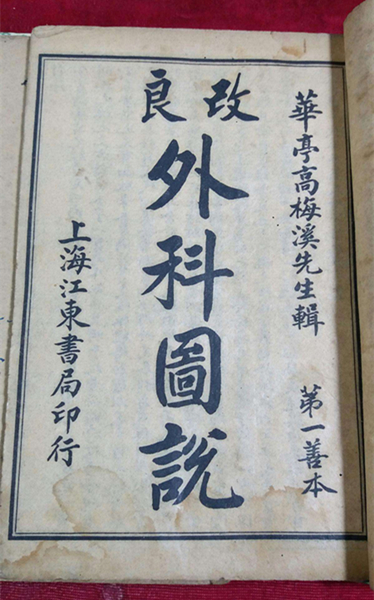 華亭高梅溪先生輯 第一善本
改良
外科圖說
上海江東書局印行